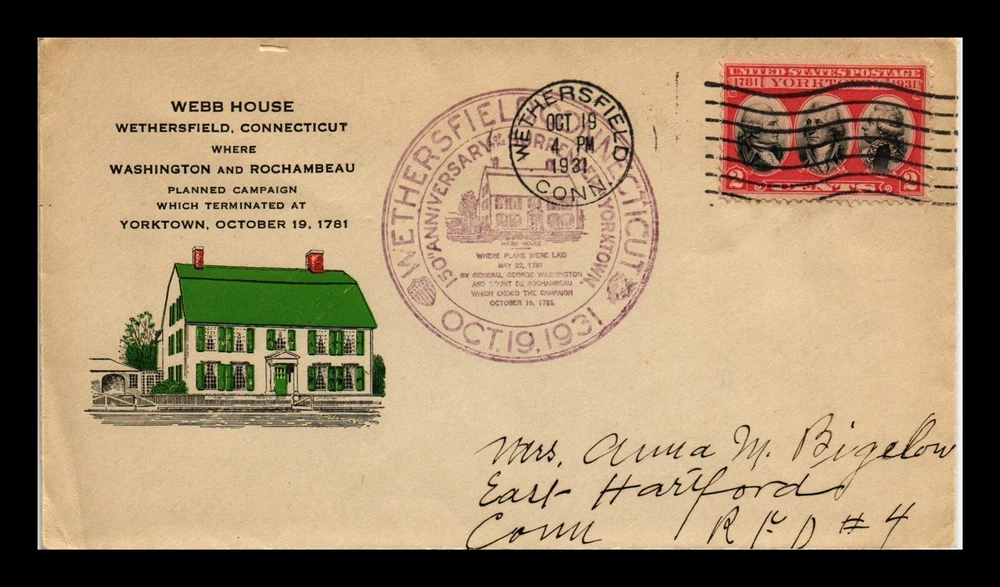 WEBB HOUSE
WETHERSFIELD, CONNECTICUT
WHERE
WASHINGTON AND ROCHAMBEAU
PLANNED CAMPAIGN
WHICH TERMINATED AT
YORKTOWN, OCTOBER 19, 1781
WETHERSFIELD, CONNECTICUT
150TH ANNIVERSARY SURRENDER YORKTOWN,
WEBB HOUSE
WHERE PLANS WERE LAID
MAY 22, 1781
BY GENERAL GEORGE WASHINGTON
AND COUNT DE ROCHAMBEAU
WHICH ENDED THE CAMPAIGN
OCTOBER 19, 1781.
OCT. 19, 1931
WETHERSFIELD
OCT 19
4 PM
1931
CONN.
UNITED STATES POSTAGE
1781 YORKTOWN 1931
2 CENTS 2
Mrs. Anna M. Bigelow
East Hartford
Conn R F D # 4